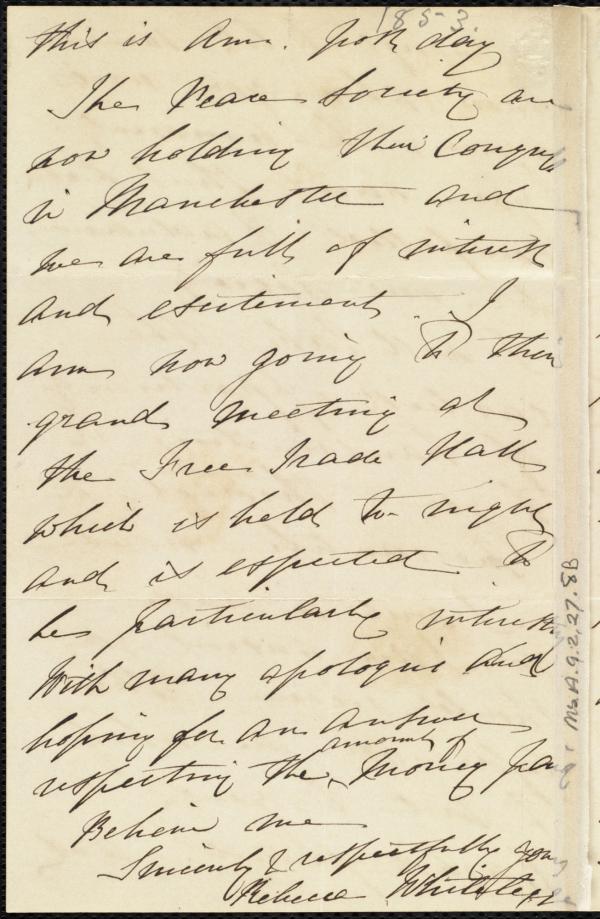 1853
this is Am. post day
The Peace Society are
now holding their Congre
in Manchester and
we are full of interest
and excitement. I
am now going to their
grand meeting at
the Free Trade Hall
which is held to-night
and is expected to
be particularly interest
With many apologies and
hoping for an answer
amount of
respecting the Money
Believe me
Sincerely & respectfully your
Rebecca Whitelegge
Ms.A.9.2.27.8B